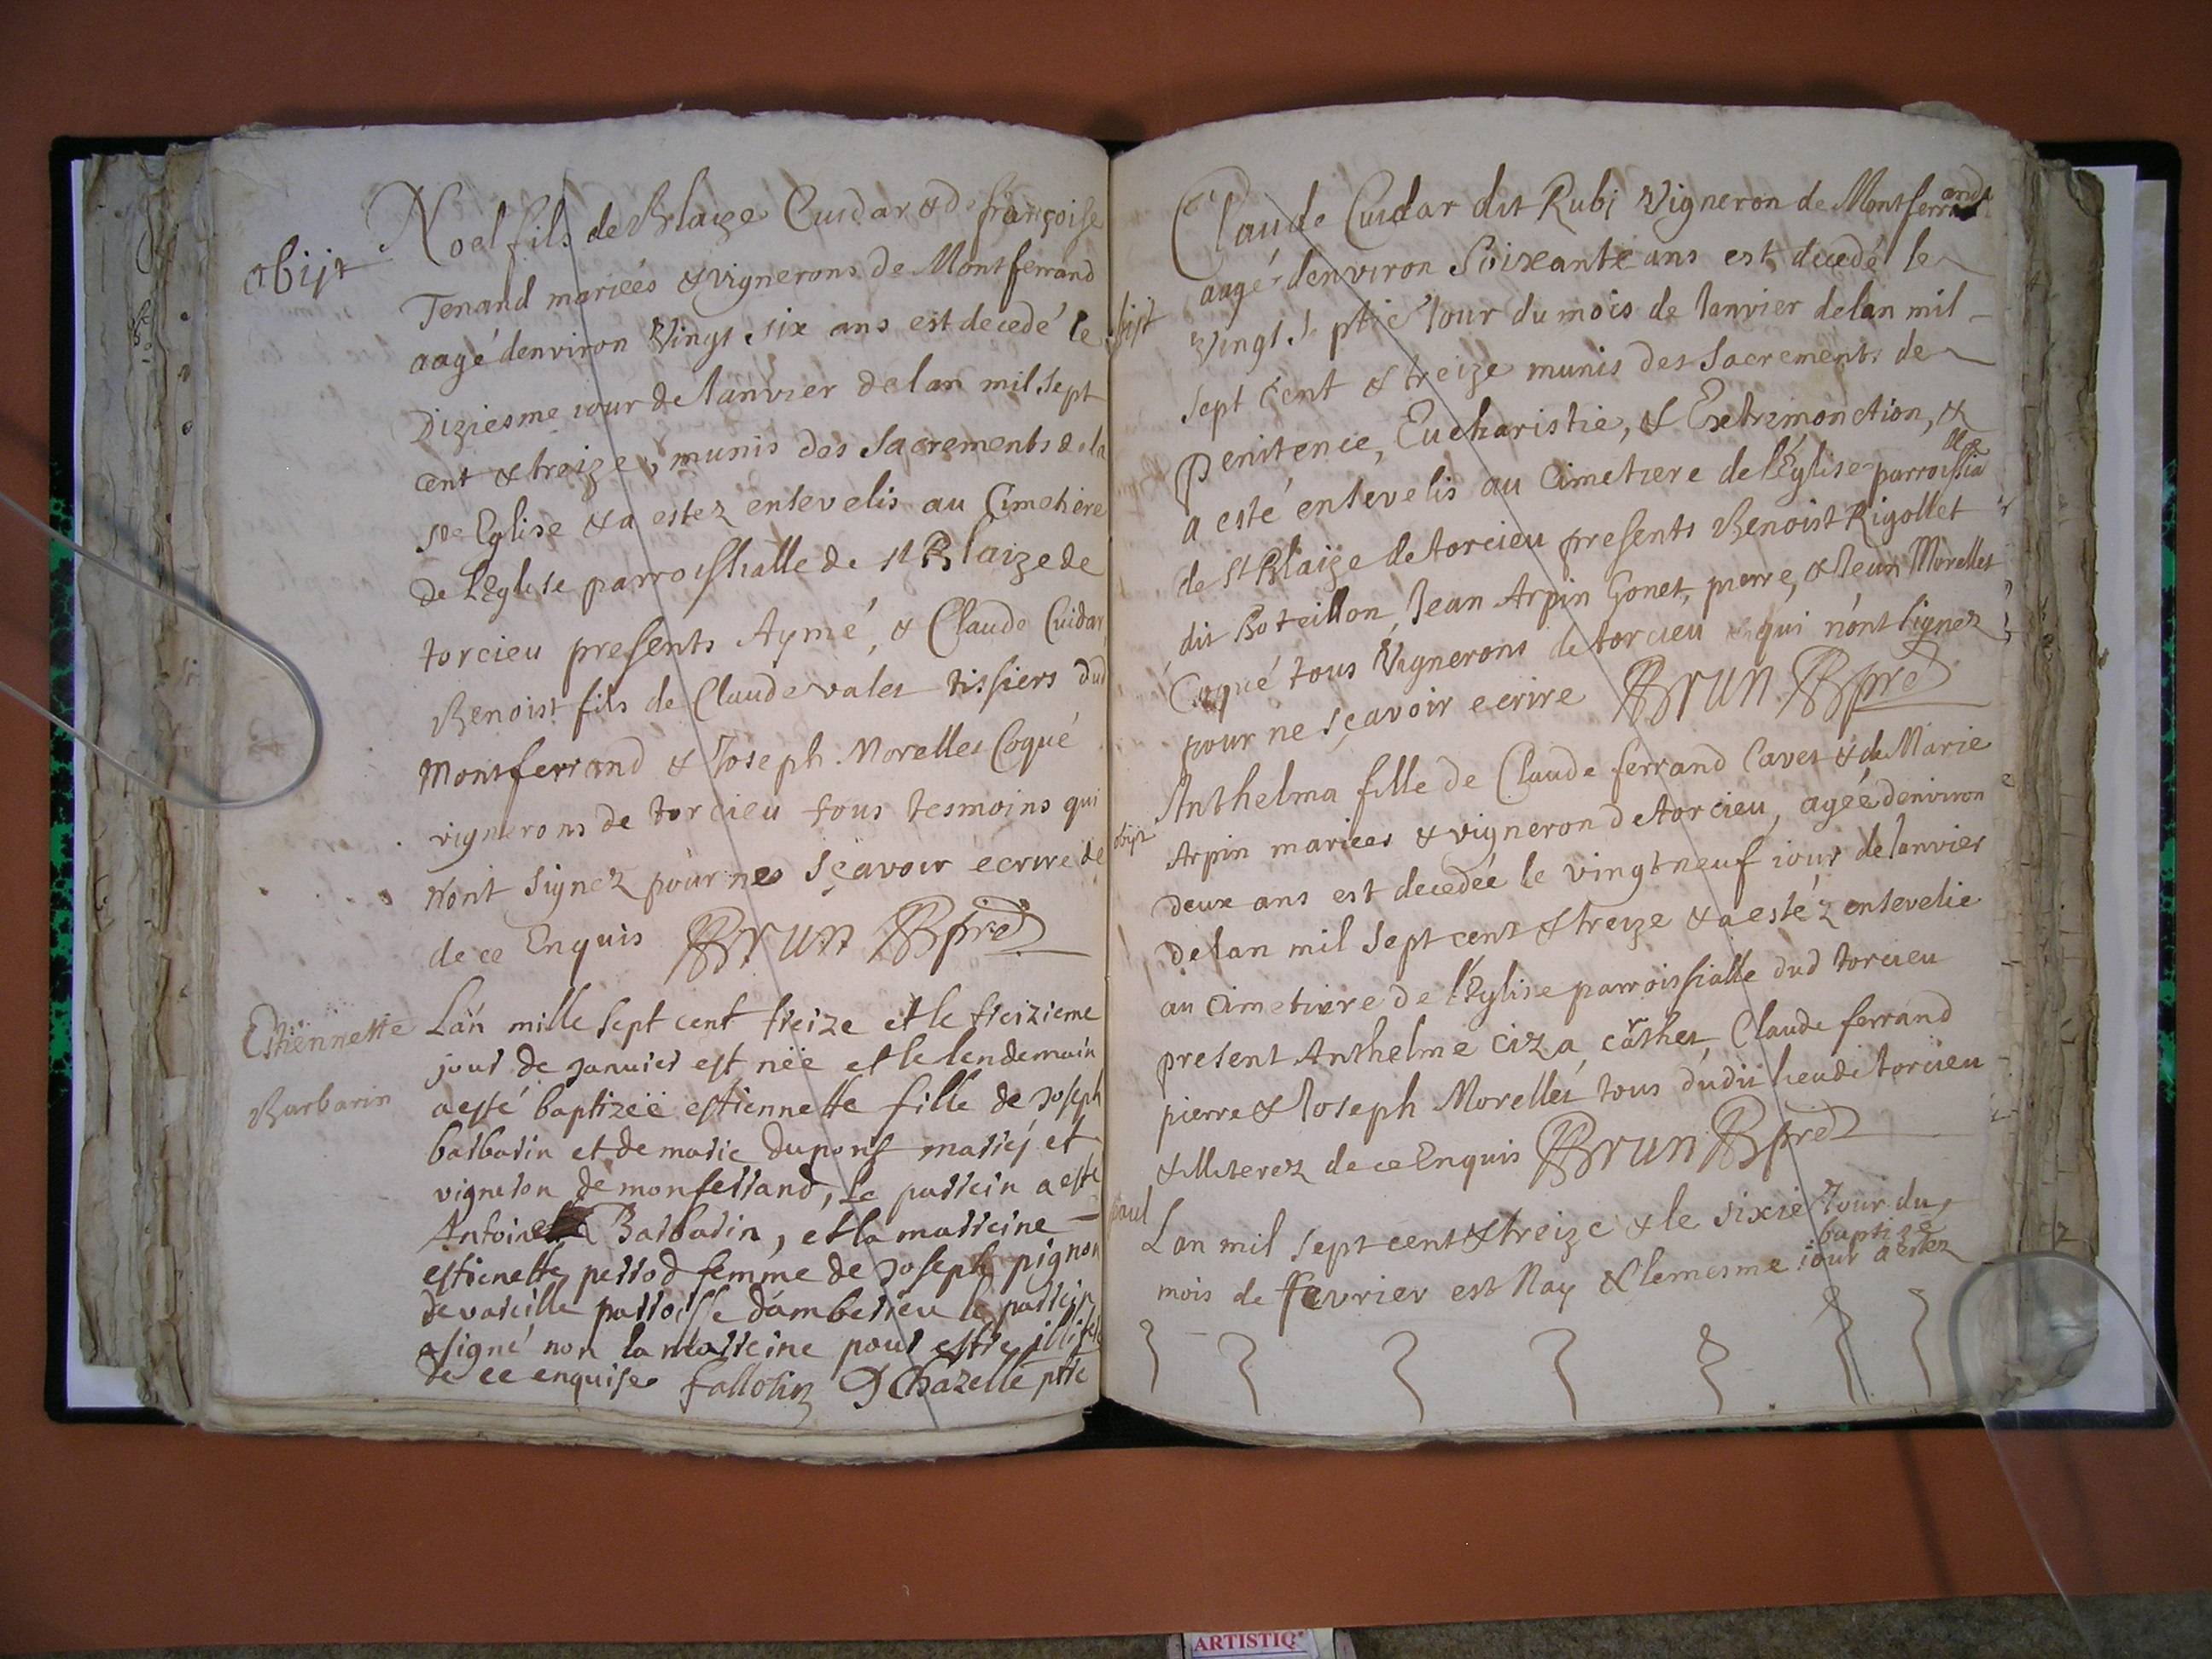 obijt
Noel fils de Blaize Cuidar & de françoise
Tenand mariéés & vignerons de Montferrand
aagé denviron Vingt six ans est decedé le
Diziesme iour de Ianvier de lan mil sept
cent & treize, munis des Sacrements de la
ste Eglise & a estez ensevelis au Cimetiere
de LEglise parroissialle de st Blaize de
torcieu presents Aymé, & Claude Cuidar,
Benoist fils de Claude valet tissiers dud
Montferrand & Ioseph Morellet Coqué
vignerons de torcieu tous tesmoins qui
nont signez pour nes sçavoir ecrire de
de ce Enquis Brun pre
Estiennette
Barbarin
Lan mille sept cent treize et le treizieme
jour de janvier est néé et le lendemain
a esté baptizéé estiennette fille de joseph
barbarin et de marie dupont mariéj et
vigneron de monferrand, le parrein a esté
Antoine Barbarin, et la marreine
estienette perrod femme de joseph pignon
de vareille parroisse dámberieu le parrein
a signé non la marreine pour estre illiteré
de ce enquise fallotin D Chazelle ptre
Claude Cuidar dit Rubi Vigneron de Montferrand
aagé denviron Soixante ans est decedé le
obijt
Vingt Septié Iour du mois de Ianvier de lan mil
sept cent & treize munis des Sacrements de
penitence, Eucharistie, & Extremonction, &
a esté ensevelis au Cimetiere de lÉglise parroissialle
de st Blaize de torcieu presents Benoist Rigollet
dit Boteillon, Jean Arpin Gonet, pierre, & Jean Morellet
Coqué tous Vignerons de torcieu qui nónt signez
pour ne sçavoir ecrire Brun pre
Anthelma fille de Claude ferrand Cavet & de Marie
obijt
Arpin mariees & vigneron de torcieu, agéé denviron
deux ans est decedéé le vingt neuf iour de Ianvier
de lan mil sept cent & treize & a estéz ensevelie
au Cimetiere de lÉglise parroissialle dud torcieu
present Anthelme Ciza, Claude ferrand
pierre & Ioseph Morellet tous dudit lieu de torcieu
& illiterez de ce Enquis Brun pre
paul
Lan mil sept cent & treize & le sixié Iour du
mois de fevrier est Nay & le mesme iour a estez
baptizé